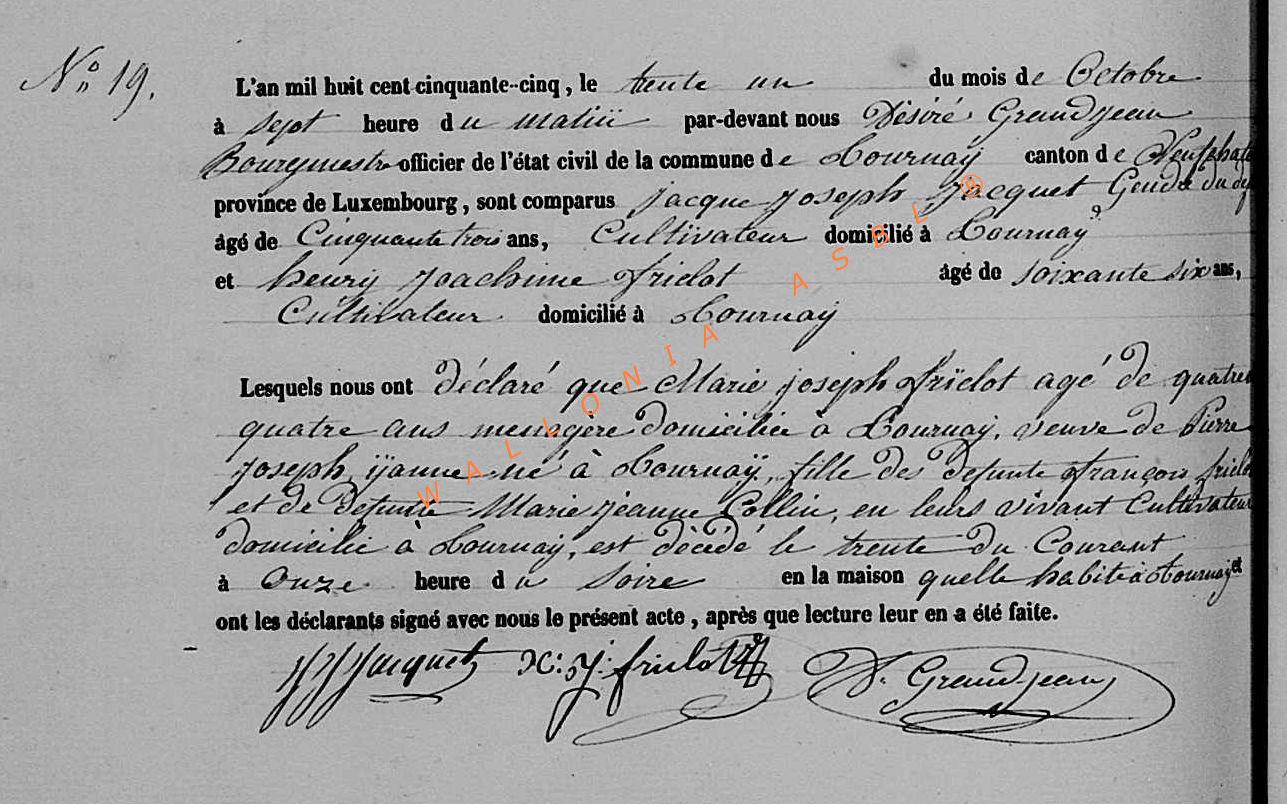 N° 19.
L'an mil huit cent cinquante-cinq, le trente un du mois de Octobre
à sept heure du matin par-devant nous Désiré Grandjean
Bourgmestre officier de l'état civil de la commune de Tournay canton de Neufchate
province de Luxembourg, sont comparus jacque joseph Jacquet Gendre du
âgé de Cinquante trois ans, Cultivateur domicilié à Tournay
et henry joachime friclot âgé de soixante six ans,
Cultivateur domicilié à Tournay
Lesquels nous ont déclaré que Marie joseph friclot agé de quatre
quatre ans menagère domiciliée à Tournay, veuve de Pierre
joseph yanne né à Tournay, fille de defunte françois friclo
et de Defunte Marie jeanne Collin, en leurs vivant Cultivateur
domicilié à Tournay, est décédé le trente du Courant
à Onze heure du soire en la maison quelle habite à Tournay et
ont les déclarants signé avec nous le présent acte, après que lecture leur en a été faite.
JJ Jacquet H: J: friclot D. Grandjean
WALLONIA ASBL ®